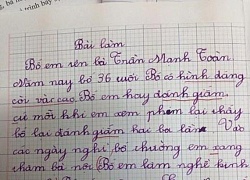 Bài làm
Bố em tên là Trần Mạnh Toàn.
Năm nay bố 36 tuổi Bố có hình dáng
cao. Bố em hay đánh giầm,
cứ mỗi khi em xem phim lại thấy
bố lại đánh giầm hai ba lần. Vào
các ngày nghỉ bố thường em sang
thăm bà nội Bố em làm nghề kinh